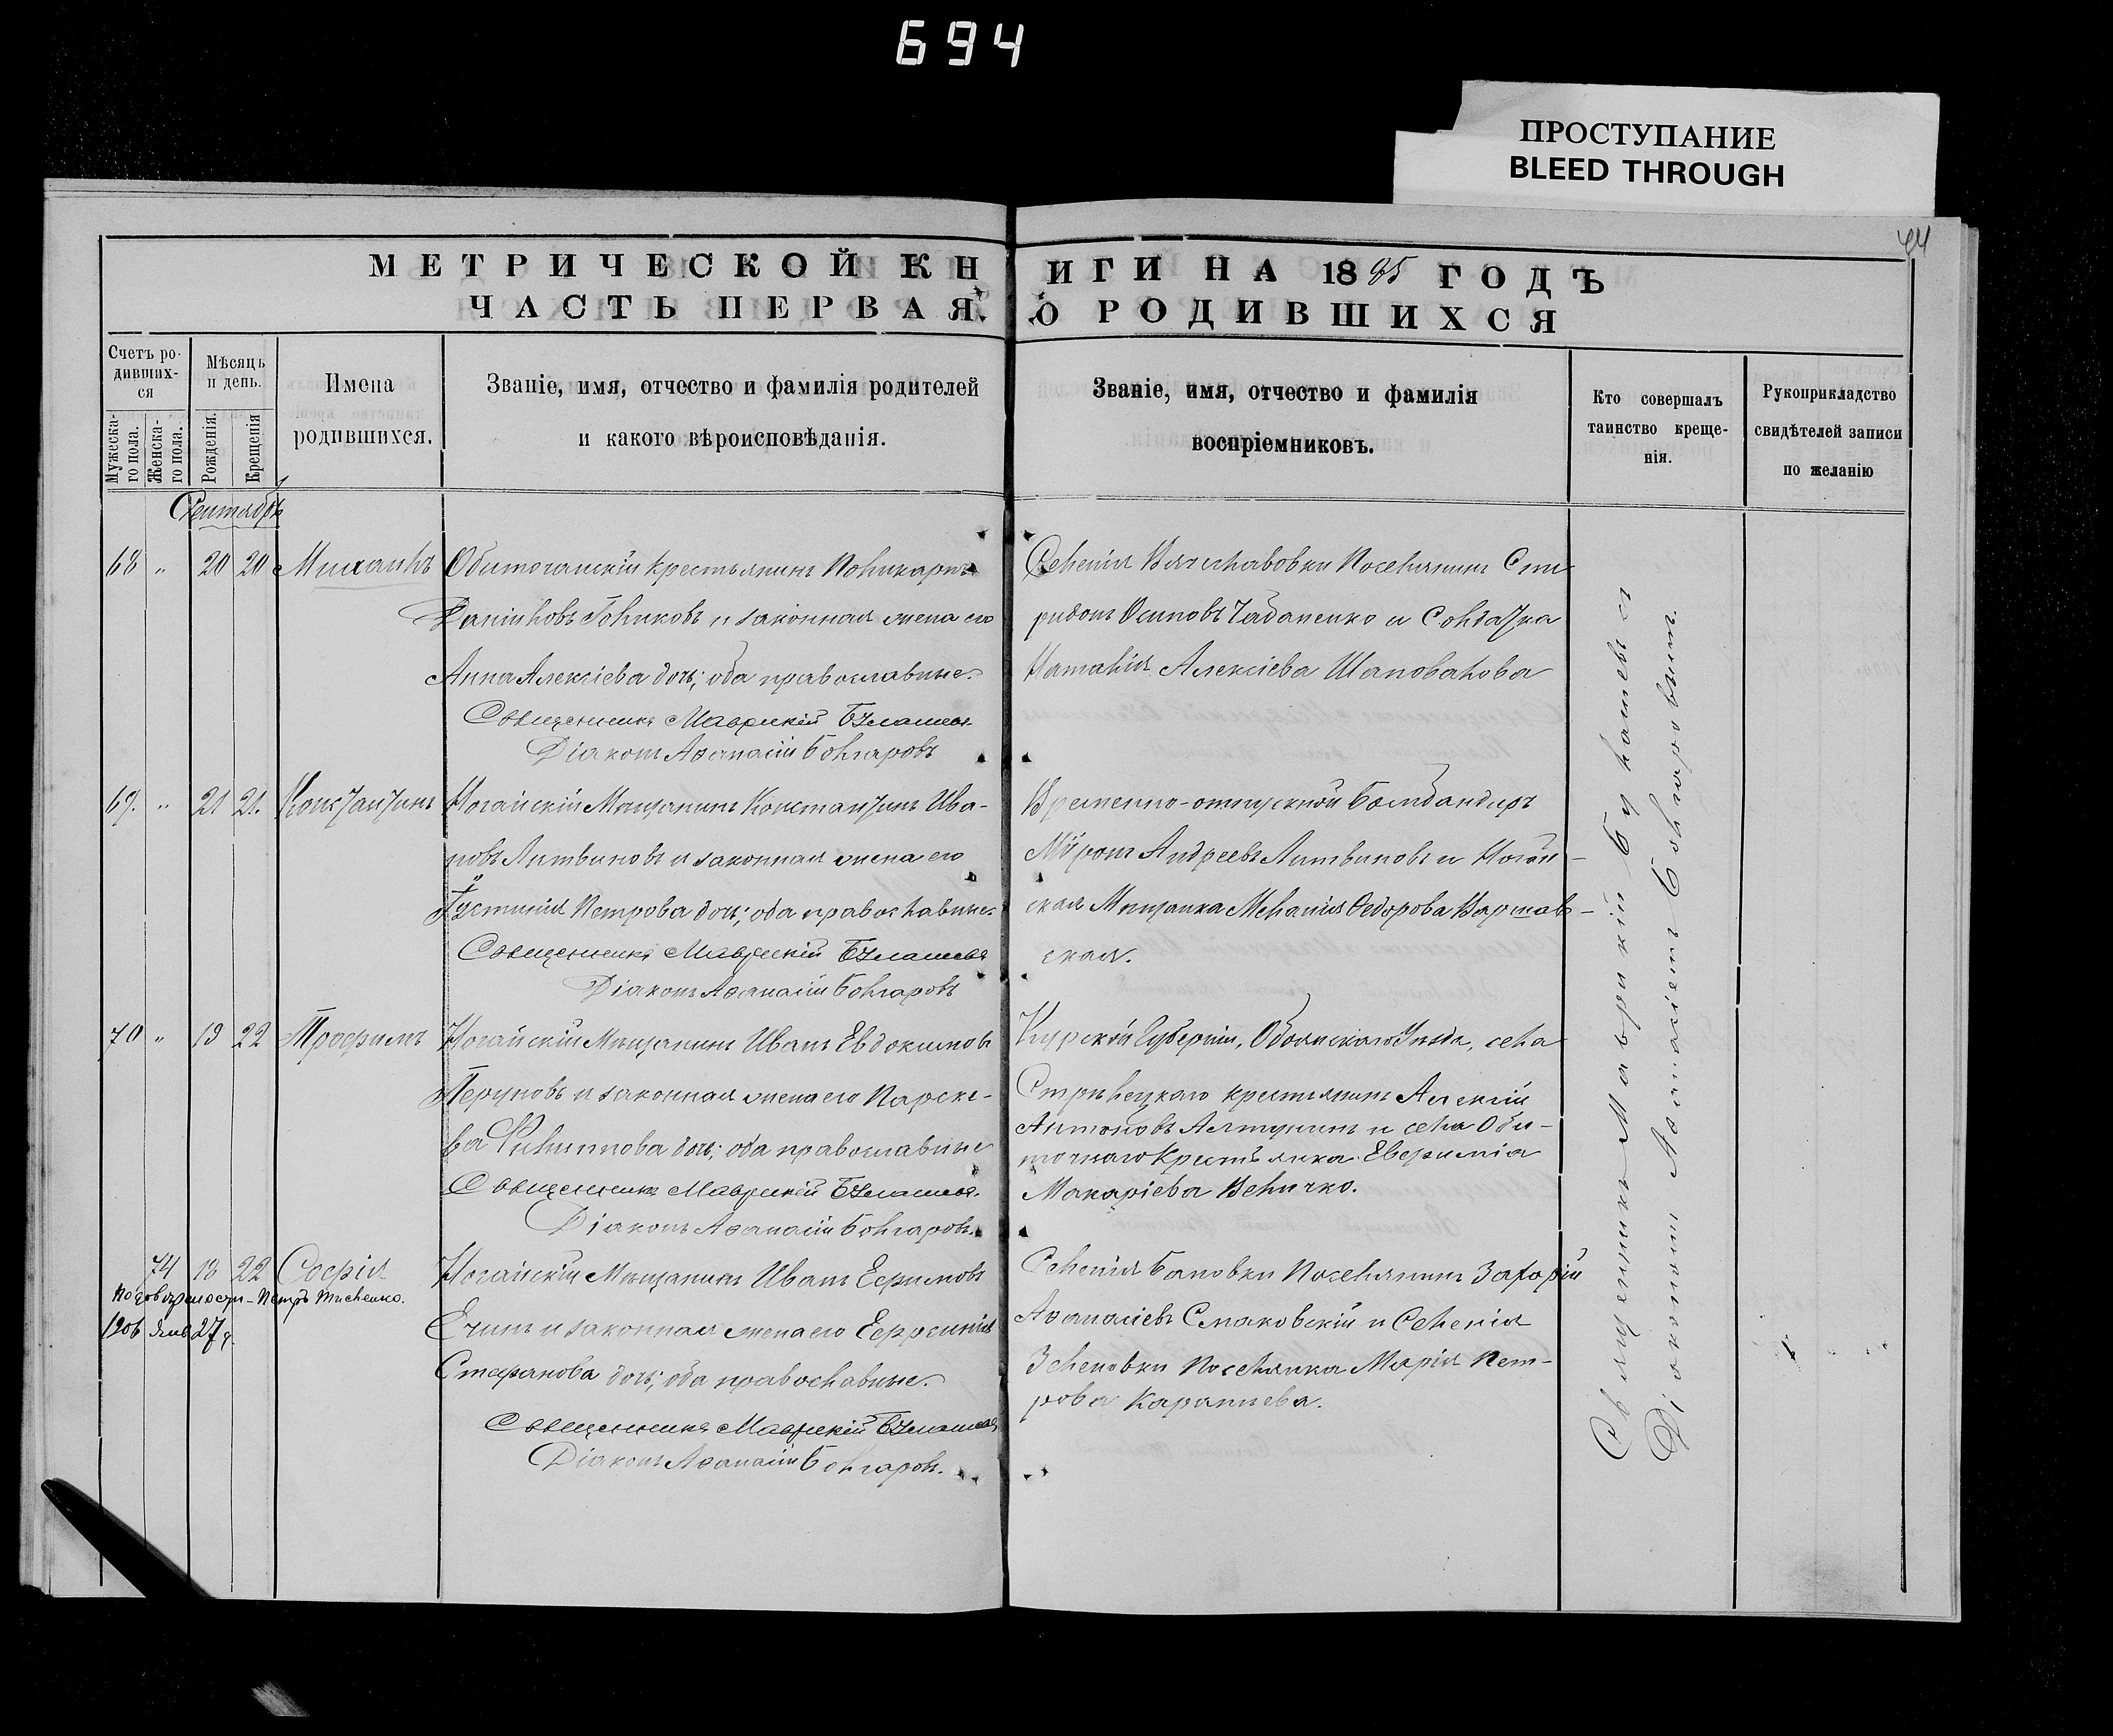 694
ПРОСТУПАНИЕ
BLEED THROUGH
44
МЕТРИЧЕСКОЙ КНИГИ НА 1885 ГОДЪ
ЧАСТЬ ПЕРВАЯ. О РОДИВШИХСЯ
Счетъ ро-
дивших-
ся
Мужеска-
го пола.
Женска-
го пола.
Мѣсяцъ
и день.
Рожденія.
Крещенія
Имена
родившихся.
Званіе, имя, отчество и фамилія родителей
и какого вѣроисповѣданія.
Званіе, имя, отчество и фамилія
воспріемниковъ.
Кто совершалъ
таинство креще-
нія.
Рукоприкладство
свидѣтелей записи
по желанію
Сентябрь
68 „ 20 20 Михаилъ
Обиточанскій крестьянинъ Поликарпъ
Даніиловъ Голиковъ и законная жена его
Анна Алексіева дочь; оба православные.
Священникъ Маврикій Булашевъ
Діаконъ Аѳанасій Болгаровъ
Селенія Вячеславовки Поселянинъ Спи
ридонъ Осиповъ Чабаненко и Солдатка
Наталія Алексіева Шаповалова
69. „ 21 21. Константинъ
Ногайскій Мѣщанинъ Константинъ Ива-
новъ Литвиновъ и законная жена его
Іустинія Петрова дочь; оба православные.
Священникъ Маврикій Булашевъ
Діаконъ Аѳанасій Болгаровъ
Временно-отпускной Бомбандиръ
Миронъ Андреевъ Литвиновъ и Ногай-
ская Мѣщанка Меланія Ѳедорова Варшав-
ская.
70 „ 19 22 Трофимъ
Ногайскій Мѣщанинъ Иванъ Евдокимовъ
Перуновъ и законная жена его Параске-
ва Филиппова дочь; оба православные
Священникъ Маврикій Булашевъ.
Діаконъ Аѳанасій Болгаровъ.
Курской Губерніи, Обоянскаго Уѣзда, села
Стрѣлецкаго крестьянинъ Алексій
Антоновъ Алтунинъ и села Оби-
точнаго Крестьянка Евфимія
Макаріева Величко.
74 18 22 Софія
По довѣрености - Петръ Тисленко.
1906 Янв 27 д.
Ногайскій Мѣщанинъ Иванъ Ефимовъ
Ечинъ и законная жена его Ефросинія
Стефанова дочь; оба православные.
Священникъ Маврикій Булашевъ
Діаконъ Аѳанасій Болгаровъ.
Селенія Бановки Поселянинъ Захарій
Аѳанасіевъ Смаковскій и Селенія
Зеленовки Поселянка Марія Пет-
рова Карапиева.
Священникъ Маврикій Булашевъ съ
Діакономъ Аѳанасіемъ Болгаровымъ.